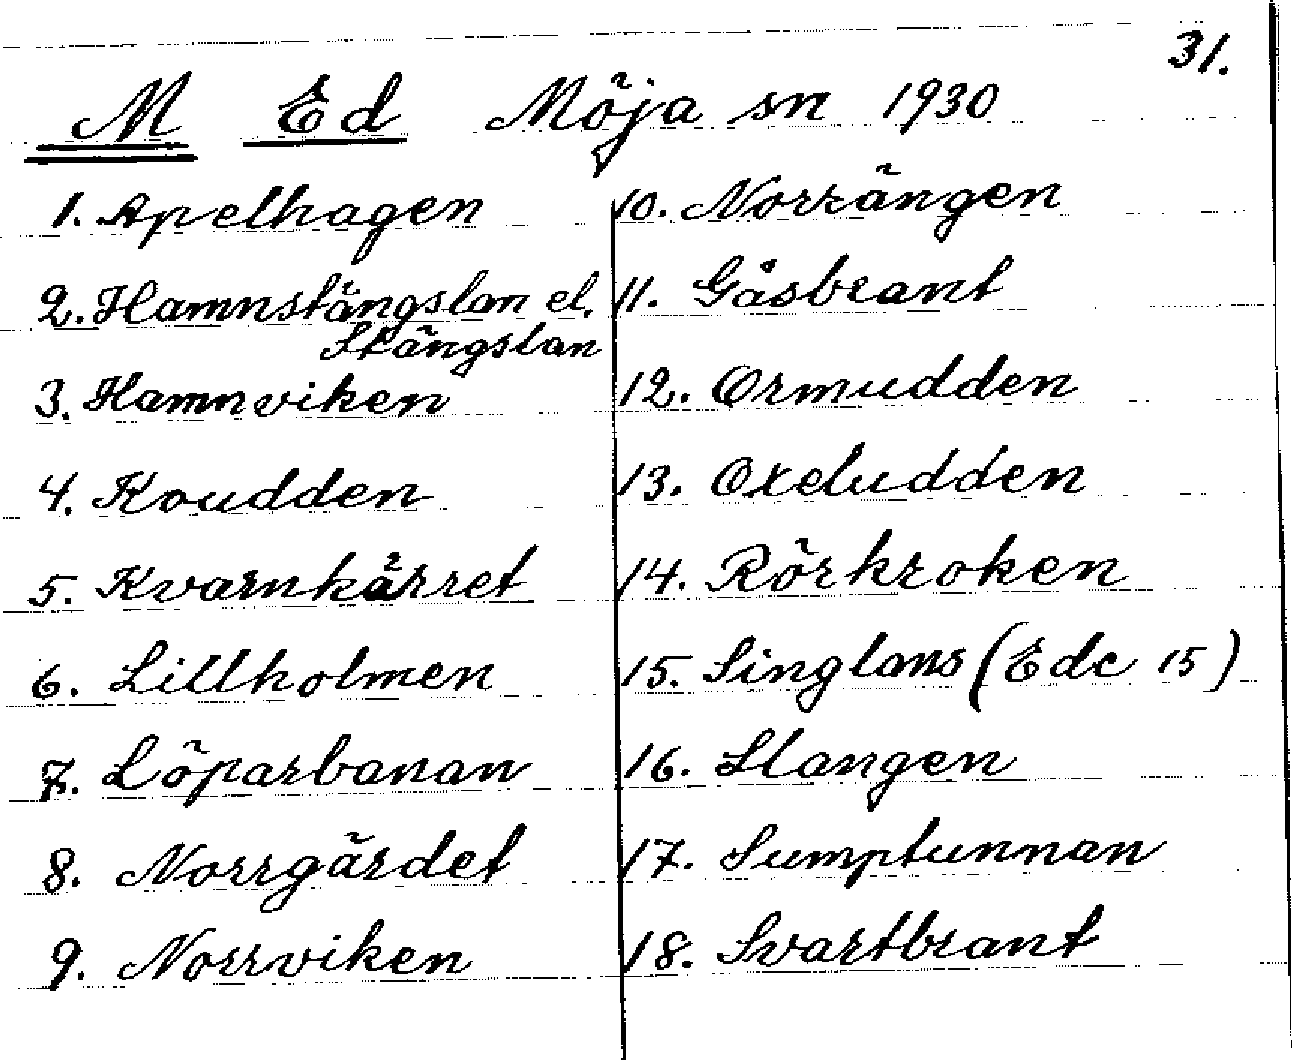 31.
M Ed Möja sn 1930
1. Apelhagen
2. Hamnstängslan el.
Stängslan
3. Hamnviken
4. Koudden
5. Kvarnkärret
6. Lillholmen
7. Löparbanan
8. Norrgärdet
9. Norrviken
10. Norrängen
11. Gåsbrant
12. Ormudden
13. Oxeludden
14. Rörkroken
15. Singlans (Edc 15)
16. Slangen
17. Sumptunnan
18. Svartbrant